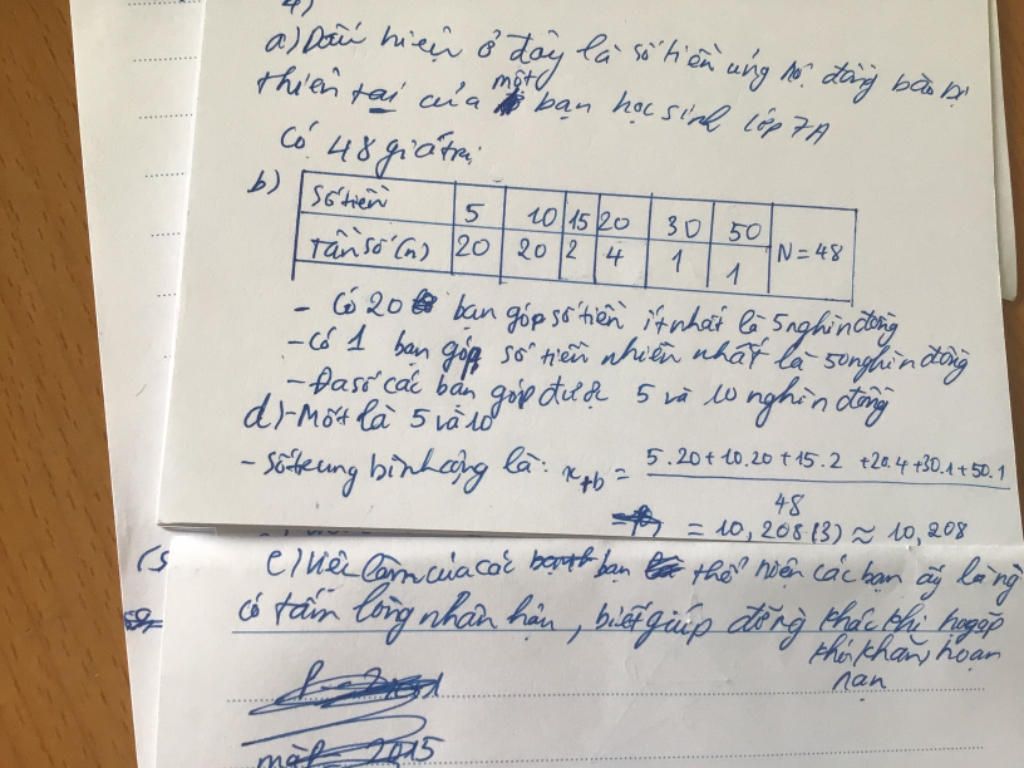 4)
a) Dấu hiệu ở đây là số tiền ủng hộ đồng bào bị
thiên tai của một bạn học sinh lớp 7A
Có 48 giá trị
b)
Số tiền 5 10 15 20 30 50 N = 48
Tần số (n) 20 20 2 4 1 1
- Có 20 bạn góp số tiền ít nhất là 5 nghìn đồng
- Có 1 bạn góp số tiền nhiên nhất là 50 nghìn đồng
- Đa số các bạn góp được 5 và 10 nghìn đồng
d) - Mốt là 5 và 10
- Số trung bình cộng là: x+b = 5.20+10.20+15.2 +20.4+30.1+50.1
48
= 10,208(3) ≈ 10,208
(5
c) Việc làm của các bạn thể hiện các bạn ấy là ng
có tấm lòng nhân hậu, biết giúp đồng khác khi họ gặp
khó khăn, hoạn
nạn
2015